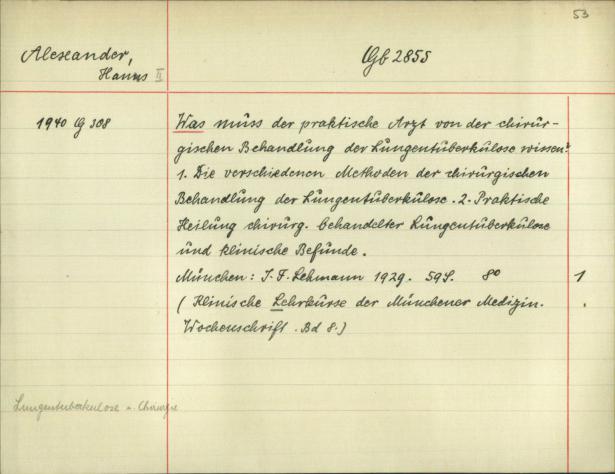 53
Alexander,
Hanns II
Gb 2855
1940 G 308
Was muss der praktische Arzt von der chirur-
gischen Behandlung der Lungentuberkulose wissen?
1. Die verschiedenen Methoden der chirurgischen
Behandlung der Lungentuberkulose. 2. Praktische
Heilung chirurg. behandelter Lungentuberkulose
und klinische Befunde.
München: J. F. Lehmann 1929. 59 S. 8° 1
(Klinische Lehrkurse der Münchener Medizin.
Wochenschrift. Bd 8.)
Lungentuberkulose u. Chirurgie